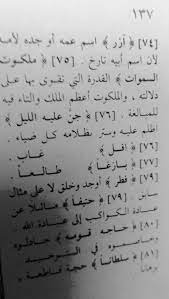 ١٣٧
[٧٤] ﴿ آزر ﴾ اسم عمه أو جده لأمه
لأن اسم أبيه تارخ . [٧٥] ﴿ ملكوت
السموات ﴾ القدرة التي تقوى بها على
دلالته ، والملكوت أعظم الملك والتاء فيه
للمبالغة . [٧٦] ﴿ جن عليه الليل ﴾
اظلم عليه وستر بظلامه كل ضياء .
[٧٦] ﴿ افل ﴾ غاب .
[٧٧] ﴿ بازغا ﴾ طالعا .
[٧٩] ﴿ فطر ﴾ أوجد وخلق لا على مثال
سابق . [٧٩] ﴿ حنيفا ﴾ مائلا عن
عبادة الكواكب إلى عبادة الله .
[٨٠] ﴿ حاجه قومه ﴾ جادلوه
وخاصموه في التوحيد
[٨١] ﴿ سلطانا ﴾ حجة قاطعة ،
وبرهانا